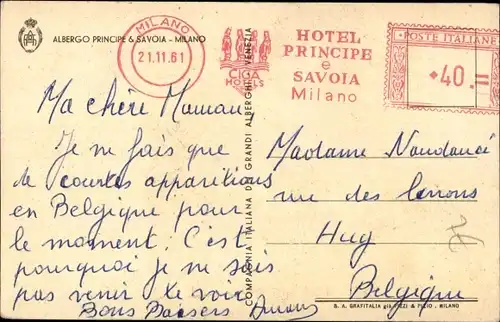 ALBERGO PRINCIPE & SAVOIA - MILANO
MILANO
21.11.61
CIGA
HOTELS
HOTEL
PRINCIPE
e
SAVOIA
Milano
POSTE ITALIANE
40.=
Ma chère Maman,
Je ne fais que
de courtes apparitions
en Belgique pour
le moment. C'est
pourquoi je ne suis
pas venir te voir
Bons Baisers
COMPAGNIA ITALIANA DEI GRANDI ALBERGHI - VENEZIA
Madame
rue des
Huy
Belgique
S. A. GRAFITALIA già PIZZI & PIZIO - MILANO